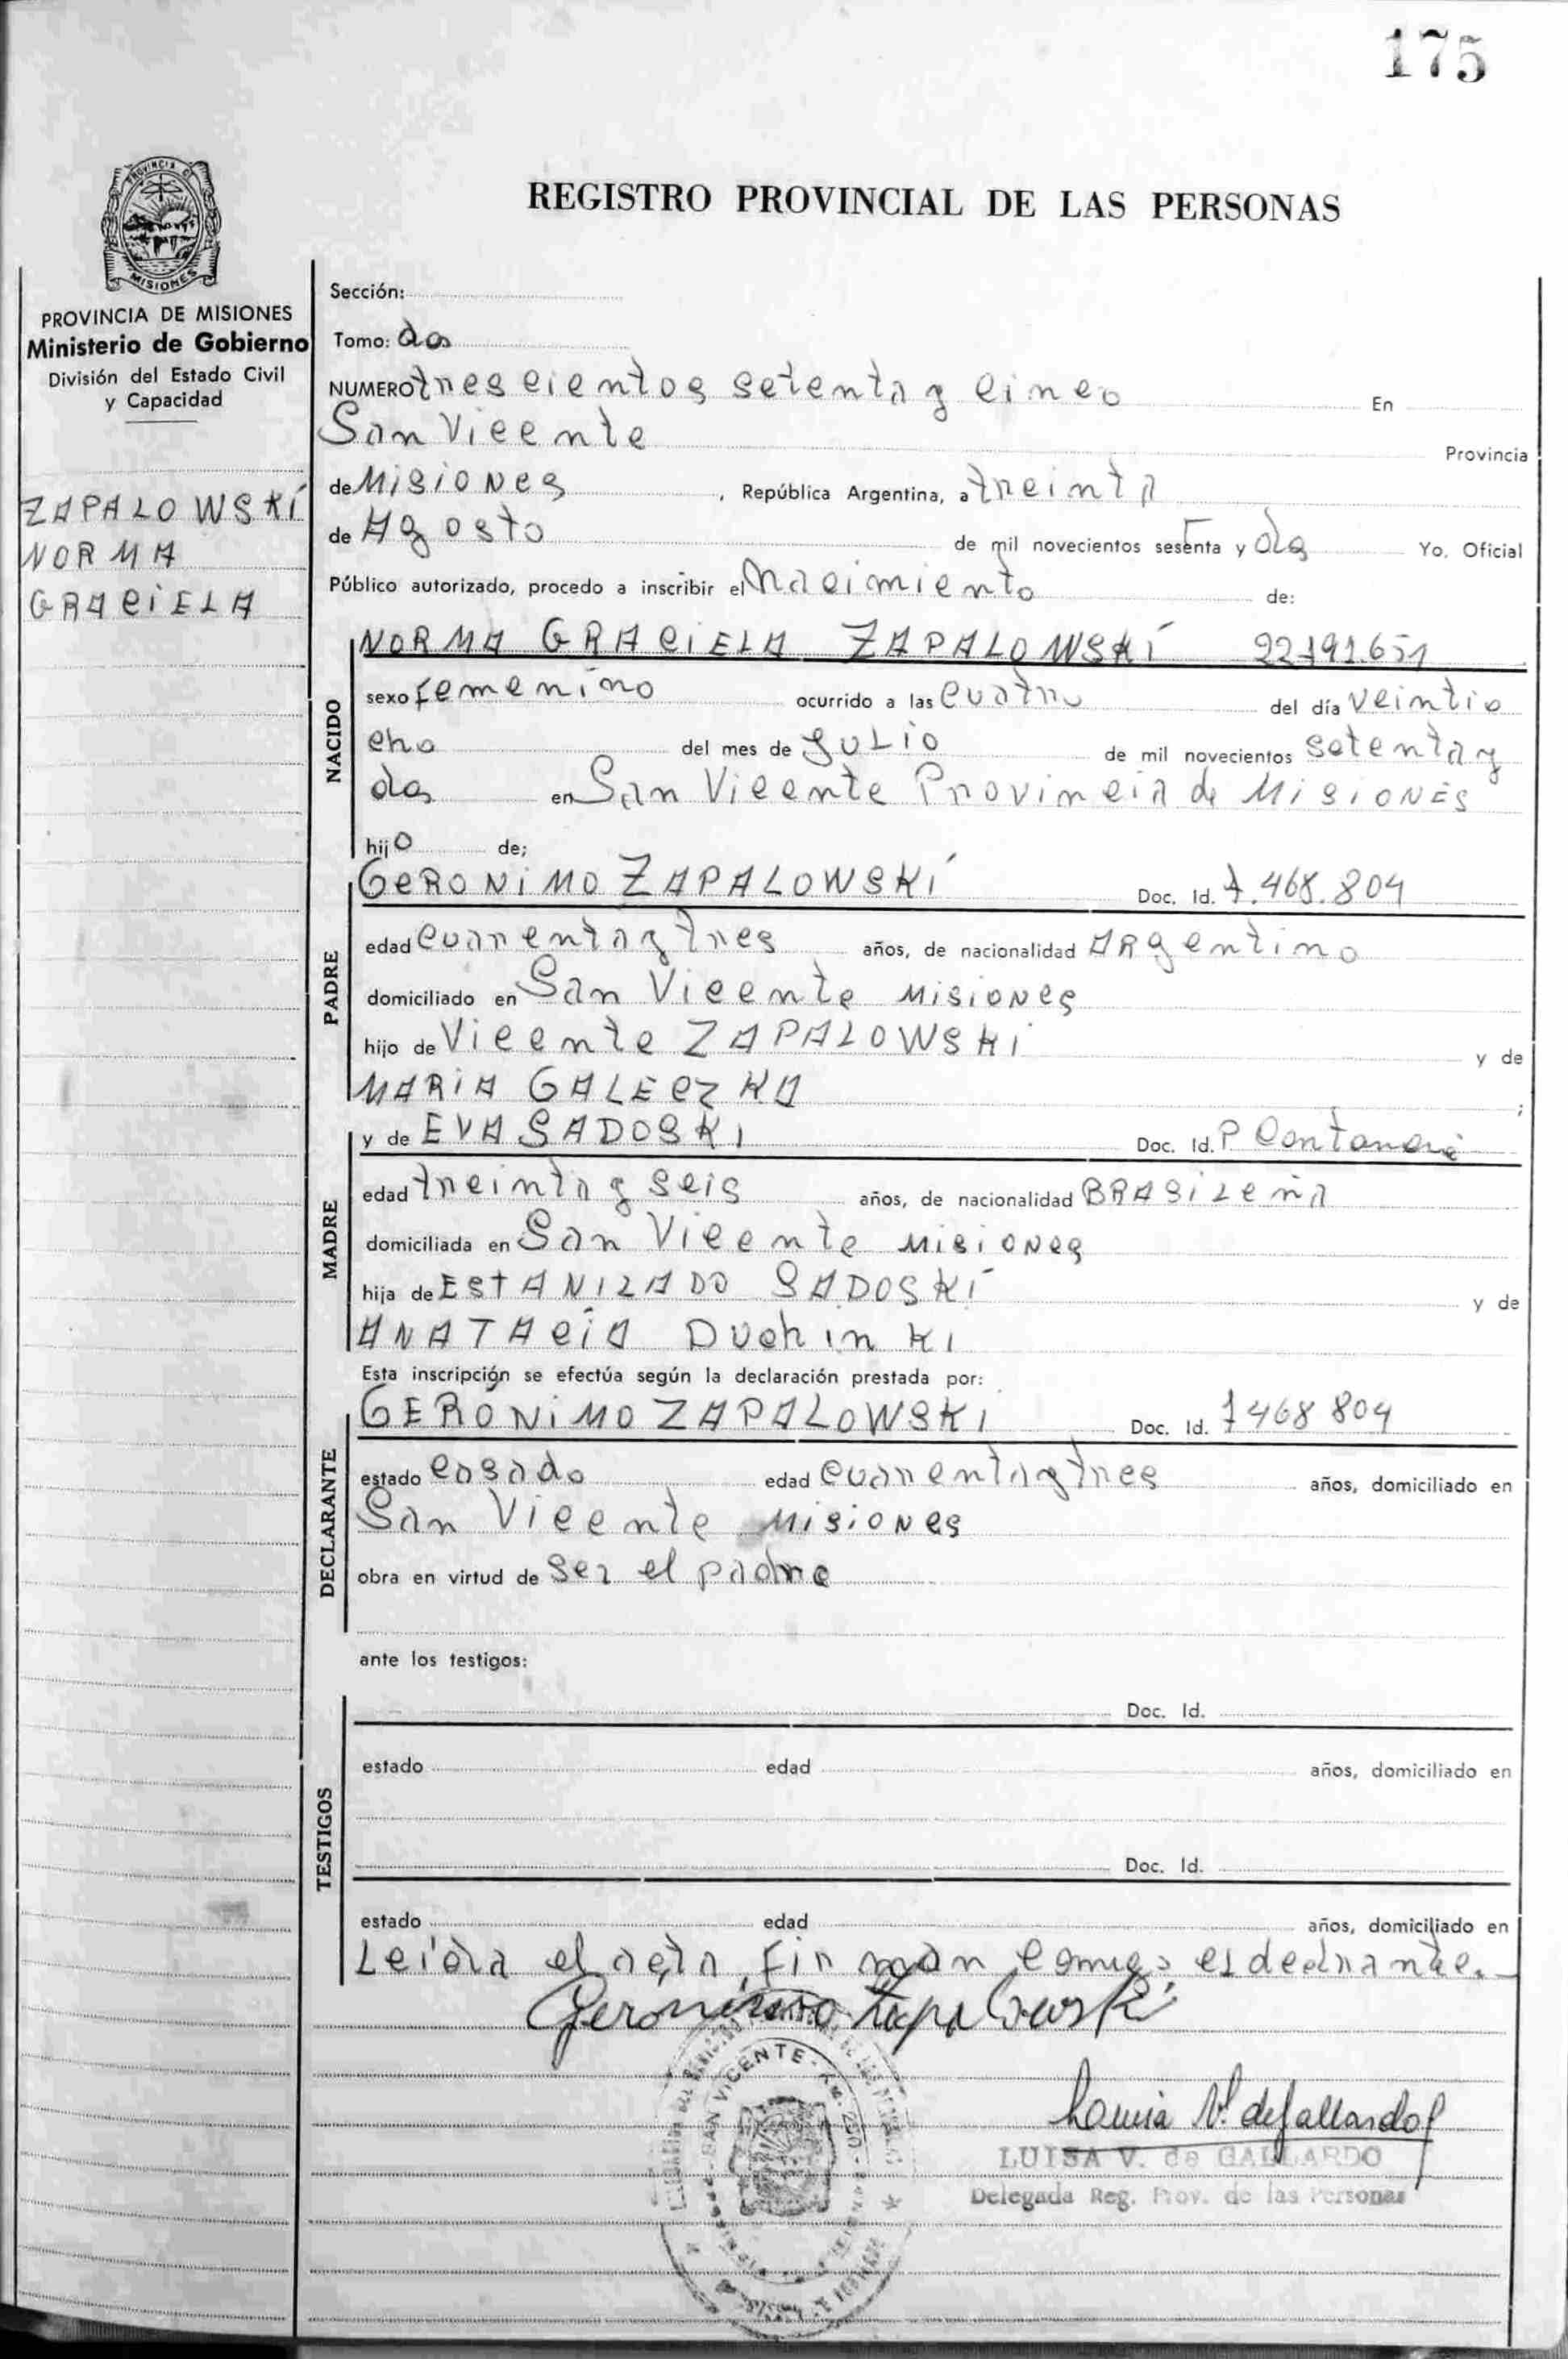 175
PROVINCIA DE
MISIONES
REGISTRO PROVINCIAL DE LAS PERSONAS
PROVINCIA DE MISIONES
Ministerio de Gobierno
División del Estado Civil
y Capacidad
ZAPALOWSKI
NORMA
GRACIELA
Sección:
Tomo: dos
NUMERO trescientos setenta y cinco En
San Vicente Provincia
de Misiones, República Argentina, a treinta
de Agosto de mil novecientos sesenta y dos Yo. Oficial
Público autorizado, procedo a inscribir el nacimiento de:
NACIDO
NORMA GRACIELA ZAPALOWSKI 22192651
sexo femenino ocurrido a las cuatro del día veintio
cho del mes de Julio de mil novecientos setenta y
dos en San Vicente Provincia de Misiones
hijo de;
PADRE
GERONIMO ZAPALOWSKI Doc. Id. 7.468.804
edad cuarenta y tres años, de nacionalidad Argentino
domiciliado en San Vicente Misiones
hijo de Vicente ZAPALOWSKI y de
MARIA GALECZKA ;
MADRE
y de EVA SADOSKI Doc. Id. P
edad treinta y seis años, de nacionalidad BRASILEÑA
domiciliada en San Vicente Misiones
hija de ESTANIZADO SADOSKI y de
ANATACIA Duchinki
Esta inscripción se efectúa según la declaración prestada por:
DECLARANTE
GERÓNIMO ZAPALOWSKI Doc. Id. 7468804
estado casado edad cuarenta y tres años, domiciliado en
San Vicente Misiones
obra en virtud de ser el padre
ante los testigos:
TESTIGOS
Doc. Id.
estado edad años, domiciliado en
Doc. Id.
estado edad años, domiciliado en
Leida el acta, firman conmigo el declarante.-
Gerónimo Zapalowski
SAN VICENTE
Louisa V. de Gallardo
LUISA V. de GALLARDO
Delegada Reg. Prov. de las Personas